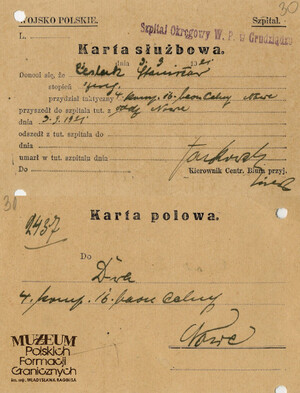 30
WOJSKO POLSKIE.
Szpital.
L.
Szpital Okręgowy W. P. w Grudziądzu
Karta służbowa.
dnia 3.9 1921
Donosi się, że Stanisław
stopień szereg.
przydział taktyczny 4. komp. 16. baon Celny Nowe
przyszedł do szpitala tut. z Nowe
dnia 3.9.1921
odszedł z tut. szpitala do
dnia
umarł w tut. szpitalu dnia
Do
Kierownik Centr. Biura przyj.
31
Karta polowa.
2437
Do
Dwa
4. komp. 16. baon Celny
Nowe
MUZEUM
Polskich
Formacji
Granicznych
im. mjr. WŁADYSŁAWA RAGINISA